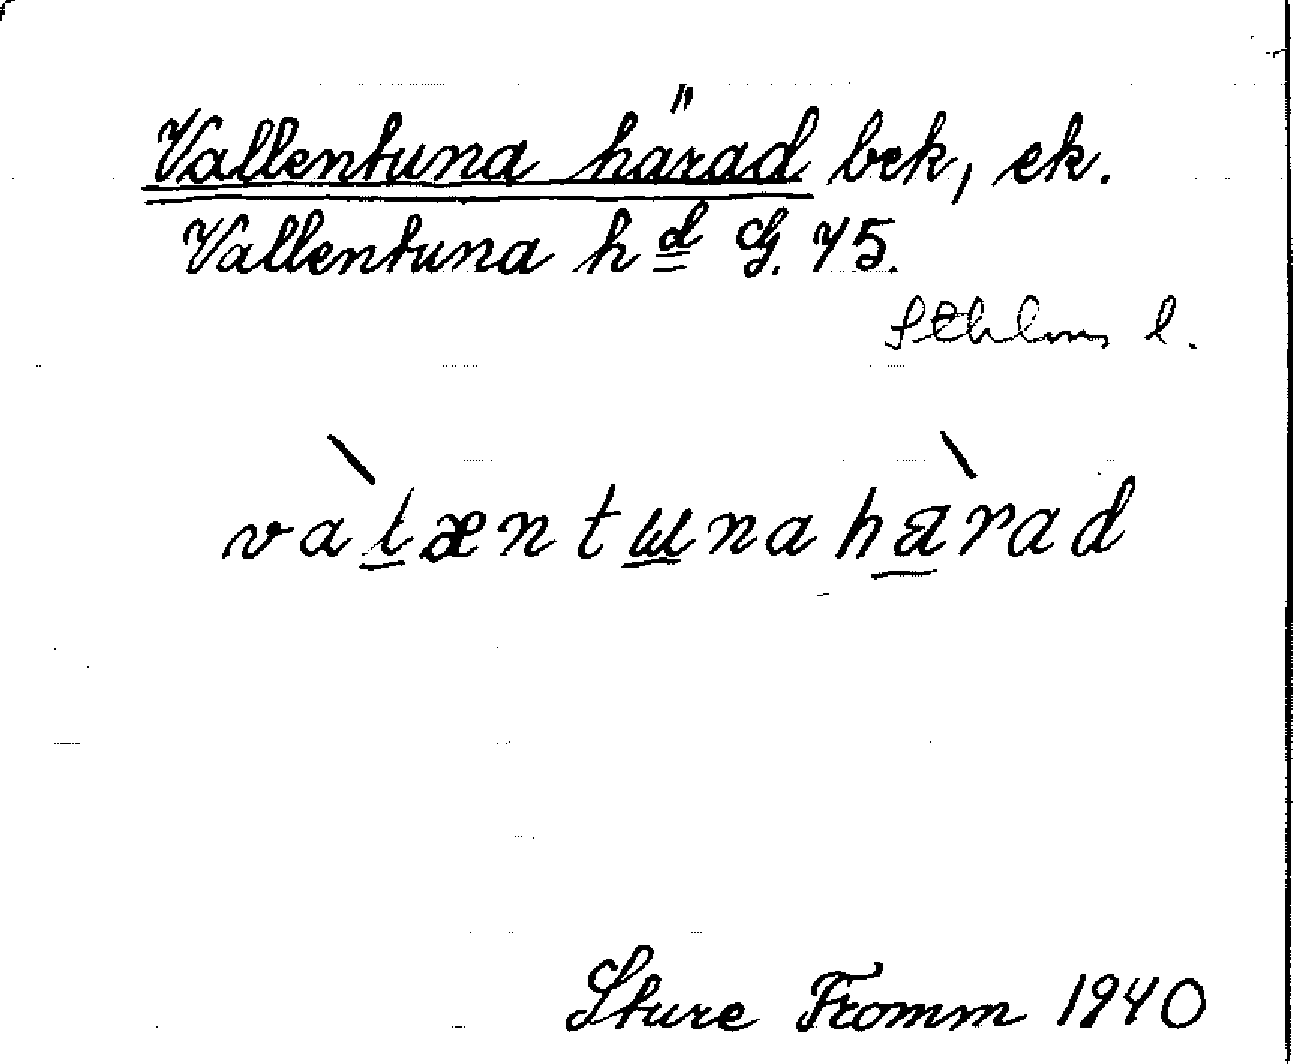 Vallentuna härad bek, ek.
Vallentuna hd G. 75.
Sthlms l.
valæntunahärad
Sture Fromm 1940